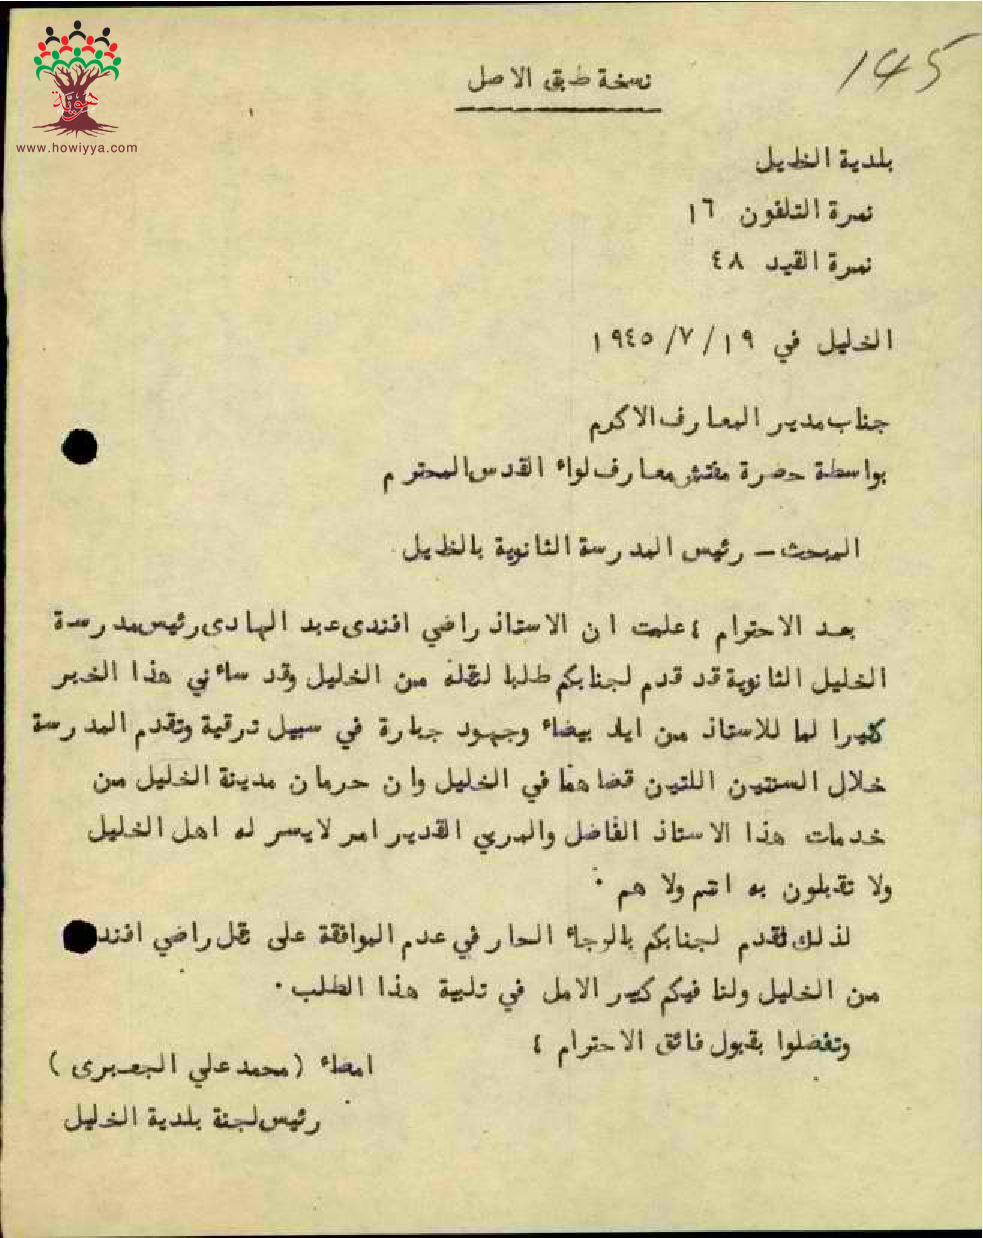 145
هوية
www.howiyya.com
نسخة طبق الاصل
بلدية الخليل
نمرة التلفون ١٦
نمرة القيد ٤٨
الخليل في ١٩/٧/١٩٤٥
جناب مدير المعارف الاكرم
بواسطة حضرة مفتش معارف لواء القدس المحترم
المبحث – رئيس المدرسة الثانوية بالخليل
بعد الاحترام ، علمت ان الاستاذ راضي افندى عبد الهادى رئيس مدرسة
الخليل الثانوية قد قدم لجنابكم طلبا لنقله من الخليل وقد ساءني هذا الخبر
كثيرا لما للاستاذ من اياد بيضاء وجهود جبارة في سبيل ترقية وتقدم المدرسة
خلال السنتين اللتين قضاهما في الخليل وان حرمان مدينة الخليل من
خدمات هذا الاستاذ الفاضل والمربي القدير امر لايسر له اهل الخليل
ولا تقبلون به انتم ولا هم .
لذلك نتقدم لجنابكم بالرجاء الحار في عدم الموافقة على نقل راضي افند
من الخليل ولنا فيكم كبير الامل في تلبية هذا الطلب .
وتفضلوا بقبول فائق الاحترام ،
امضاء (محمد علي الجعبرى)
رئيس لجنة بلدية الخليل